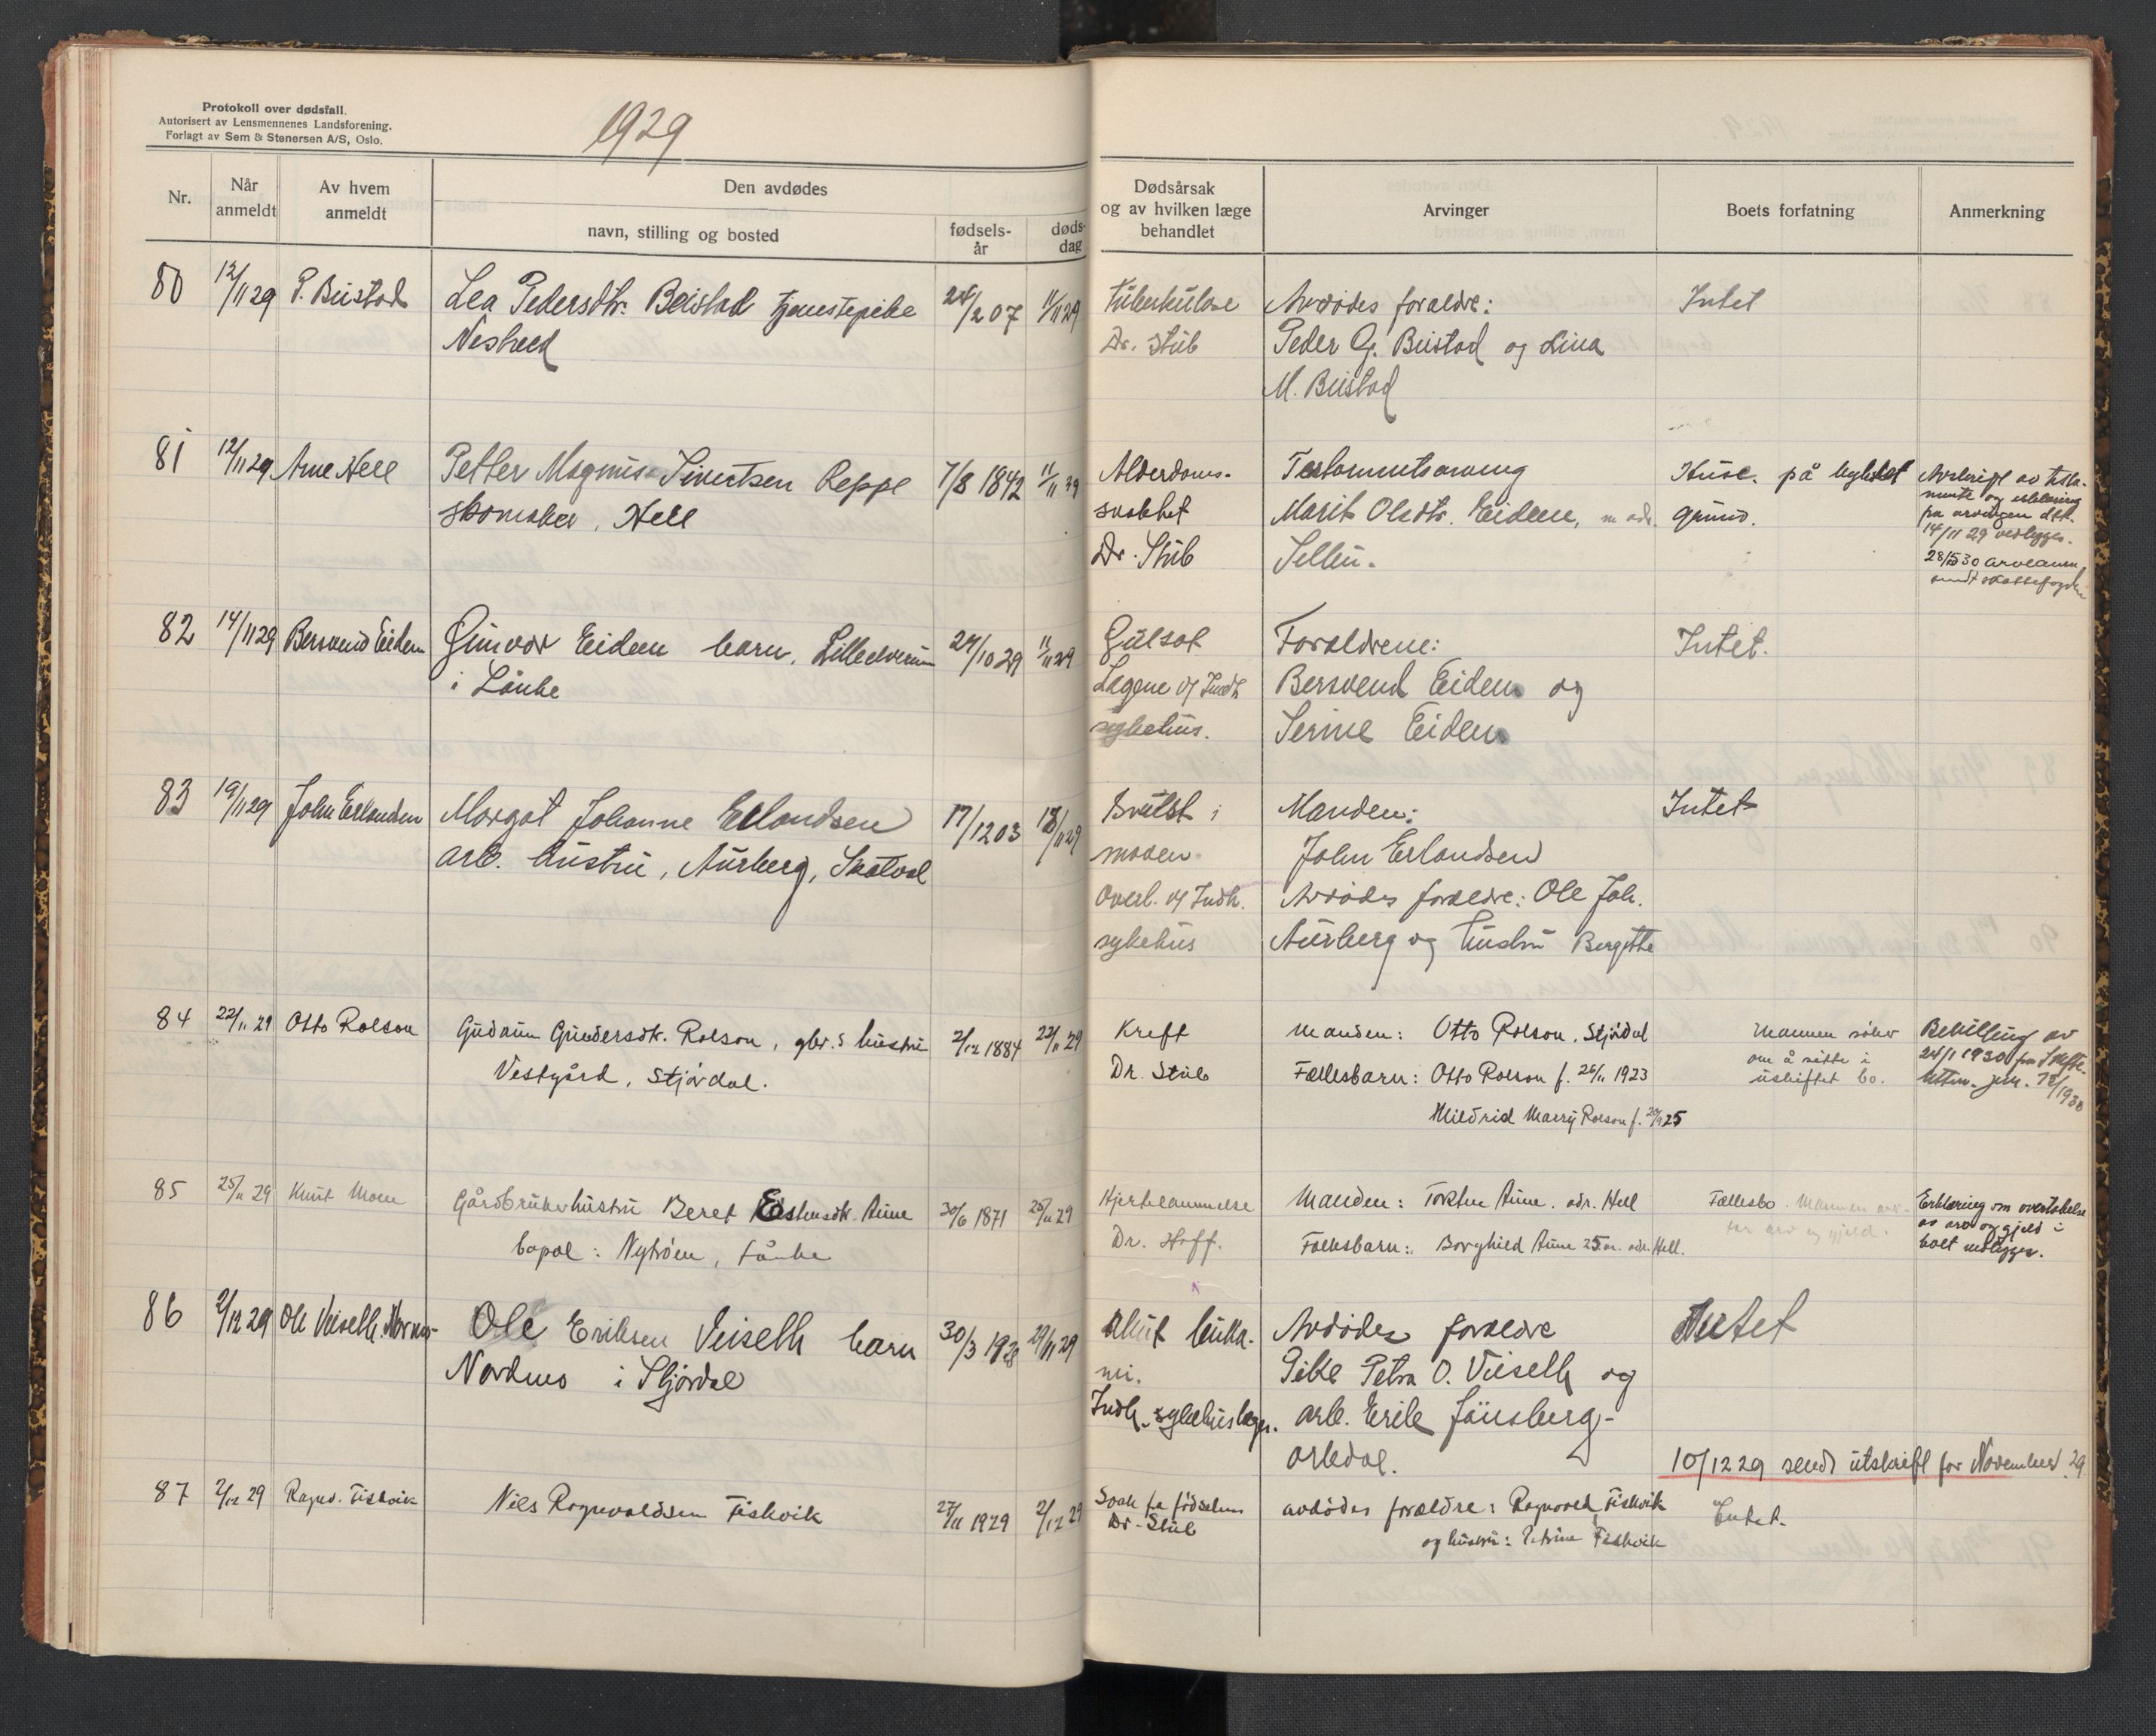 Protokoll over dødsfall.
Autorisert av Lensmennenes Landsforening.
Forlagt av Sem & Stenersen A/S, Oslo.
1929
Nr.
Når anmeldt
Av hvem anmeldt
Den avdødes
navn, stilling og bosted
fødsels-år
døds-dag
Dødsårsak og av hvilken læge behandlet
Arvinger
Boets forfatning
Anmerkning
80 12/11 29 P. Beistad Lea Pedersdtr. Beistad tjenestepike 24/2 07 11/11 29 Tuberkulose Avdødes foreldre: Intet
Dr. Stub Peder G. Beistad og Lina
M. Beistad
81 12/11 29 Arne Hell Petter Magnus Sivertsen Reppe 7/8 1842 11/11 29 Alderdoms- Testamentsarving Huse. på bygslet Avskrift av testa-
skomaker, Hell svakhet Marit Olsdtr. Eidem, grunn. mente og erklæring
fra arvingen
Dr. Stub 14/11 29 vedlegges.
28/5 30
82 14/11 29 Bersvend Eidem Gunvor Eidem barn, 24/10 29 11/11 29 Gulsot Foreldrene: Intet.
i Lånke Lægene v/ Indh. Bersvend Eidem og
sykehus. Serine Eidem
83 19/11 29 John Erlandsen Margot Johanne Erlandsen 17/12 03 18/11 29 Svulst i Manden: Intet
arb. hustru, Aurberg, Skatval maven. John Erlandsen
Overl. v/ Indh. Avdødes foreldre: Ole Joh.
sykehus Aurberg og hustru Bergitte
84 22/11 29 Otto Rolson Gudrun Gundersdtr. Rolson, gbr.s hustru 2/12 1884 22/11 29 Kreft Manden: Otto Rolson, Stjördal Mannen söker Bevilling av
Vestgård, Stjördal. Dr. Stub Fellesbarn: Otto Rolson f. 26/11 1923 om å sitte i 24/1 1930 fra Skifte-
uskiftet bo.
Mildrid Marry Rolson f. 25
85 25/11 29 Knut Moen Gårdbrukerhustru Beret Estensdtr. Aune 30/6 1871 25/11 29 Hjertelammelse Manden: Torsten Aune. adr. Hell Fellesbo. Mannen Erklæring om overtakelse
bopel: Nytröen, Lånke Dr. Hoff. Fellesbarn: Borghild Aune 25 år. adr. Hell. arv og gjeld. av arv og gjeld i
boet vedlegges.
86 2/12 29 Ole Veiseth, Ole Eriksen Veiseth barn 30/3 1928 29/11 29 Akut Avdødes foreldre Intet
Nordmo i Stjördal Pike Petra O. Veiseth og
Indh. sykehus læger. arb. Erik
10/12 29 sendt utskrift for November 29.
87 2/12 29 Ragnv. Fiskvik Nils Ragnvaldsen Fiskvik 27/11 1929 2/12 29 Svak fra födselen avdödes foreldre: Ragnvald Fiskvik Intet.
Dr. Stub og hustru: Petrine Fiskvik